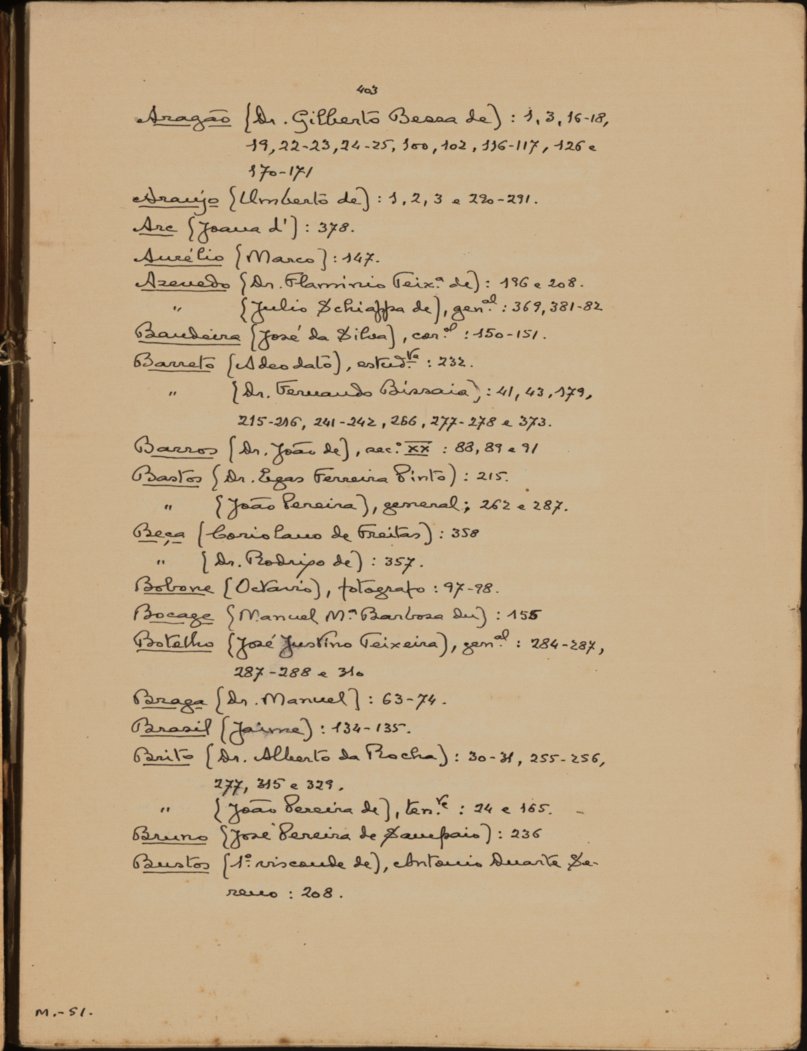 403
Aragão (Dr. Gilberto Bessa de) : 1, 3, 16-18,
19, 22-23, 24-25, 100, 102, 116-117, 126 e
170-171
Araujo (Umberto de) : 1, 2, 3 e 290-291.
Arc (Joana d') : 378.
Aurélio (Marco) : 147.
Azevedo (Dr. Flaminio Teix.ª de) : 196 e 208.
" (Julio Schiappa de), gen.al : 369, 381-82
Bandeira (José da Silva), cor.el : 150-151.
Barreto (Adeodato), estud.te : 232.
" (Dr. Fernando Bissaia) : 41, 43, 179,
215-216, 241-242, 266, 277-278 e 373.
Barros (Dr. João de), sec.º XX : 88, 89 e 91
Bastos (Dr. Egas Ferreira Pinto) : 215.
" (João Pereira), general ; 262 e 287.
Beça (Coriolano de Freitas) : 358
" (Dr. Rodrigo de) : 357.
Bobone (Octavio), fotografo : 97-98.
Bocage (Manuel M.ª Barbosa du) : 155
Botelho (José Justino Teixeira), gen.al : 284-287,
287-288 e 310
Braga (Dr. Manuel) : 63-74.
Brasil (Jaime) : 134-135.
Brito (Dr. Alberto da Rocha) : 30-31, 255-256,
277, 315 e 329.
" (João Pereira de), ten.te : 24 e 165.
Bruno (José Pereira de Sampaio) : 236
Bustos (1.º visconde de), Antonio Duarte Se-
reno : 208.
M.-51.